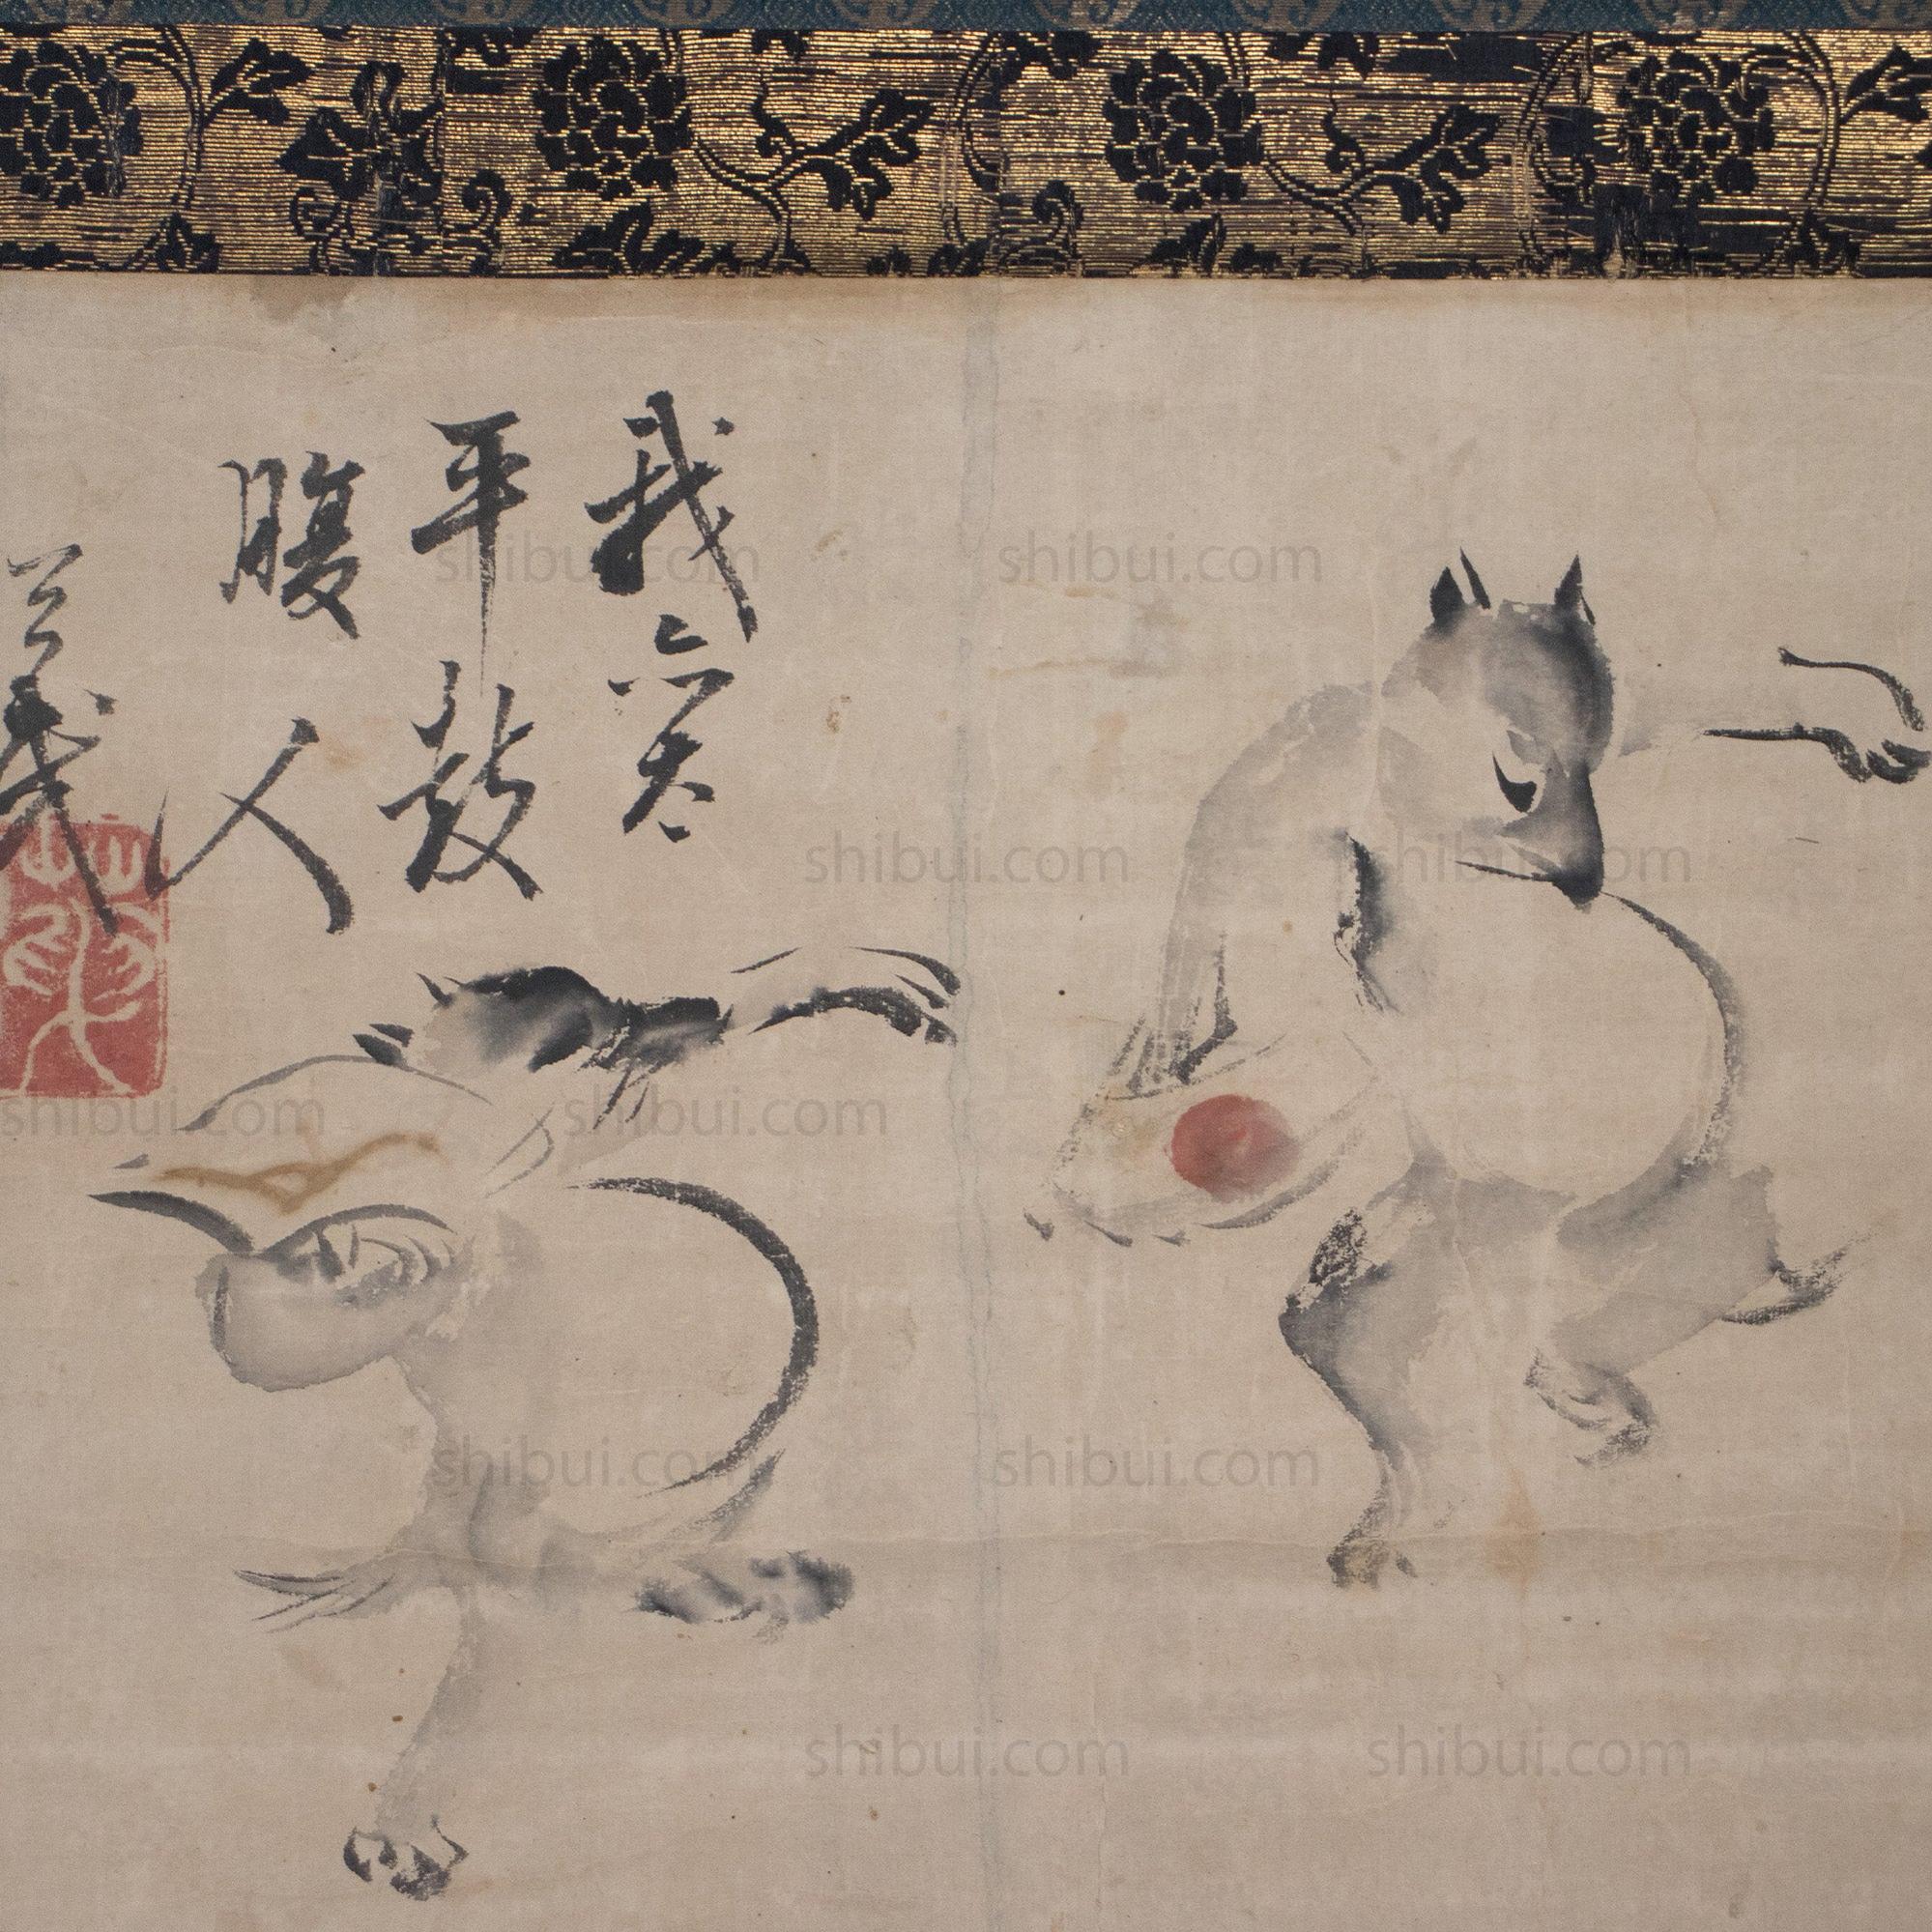 我亦太
平鼓
腹人
shibui.com
shibui.com
shibui.com
shibui.com
shibui.com
shibui.com
shibui.com
shibui.com
shibui.com
shibui.com